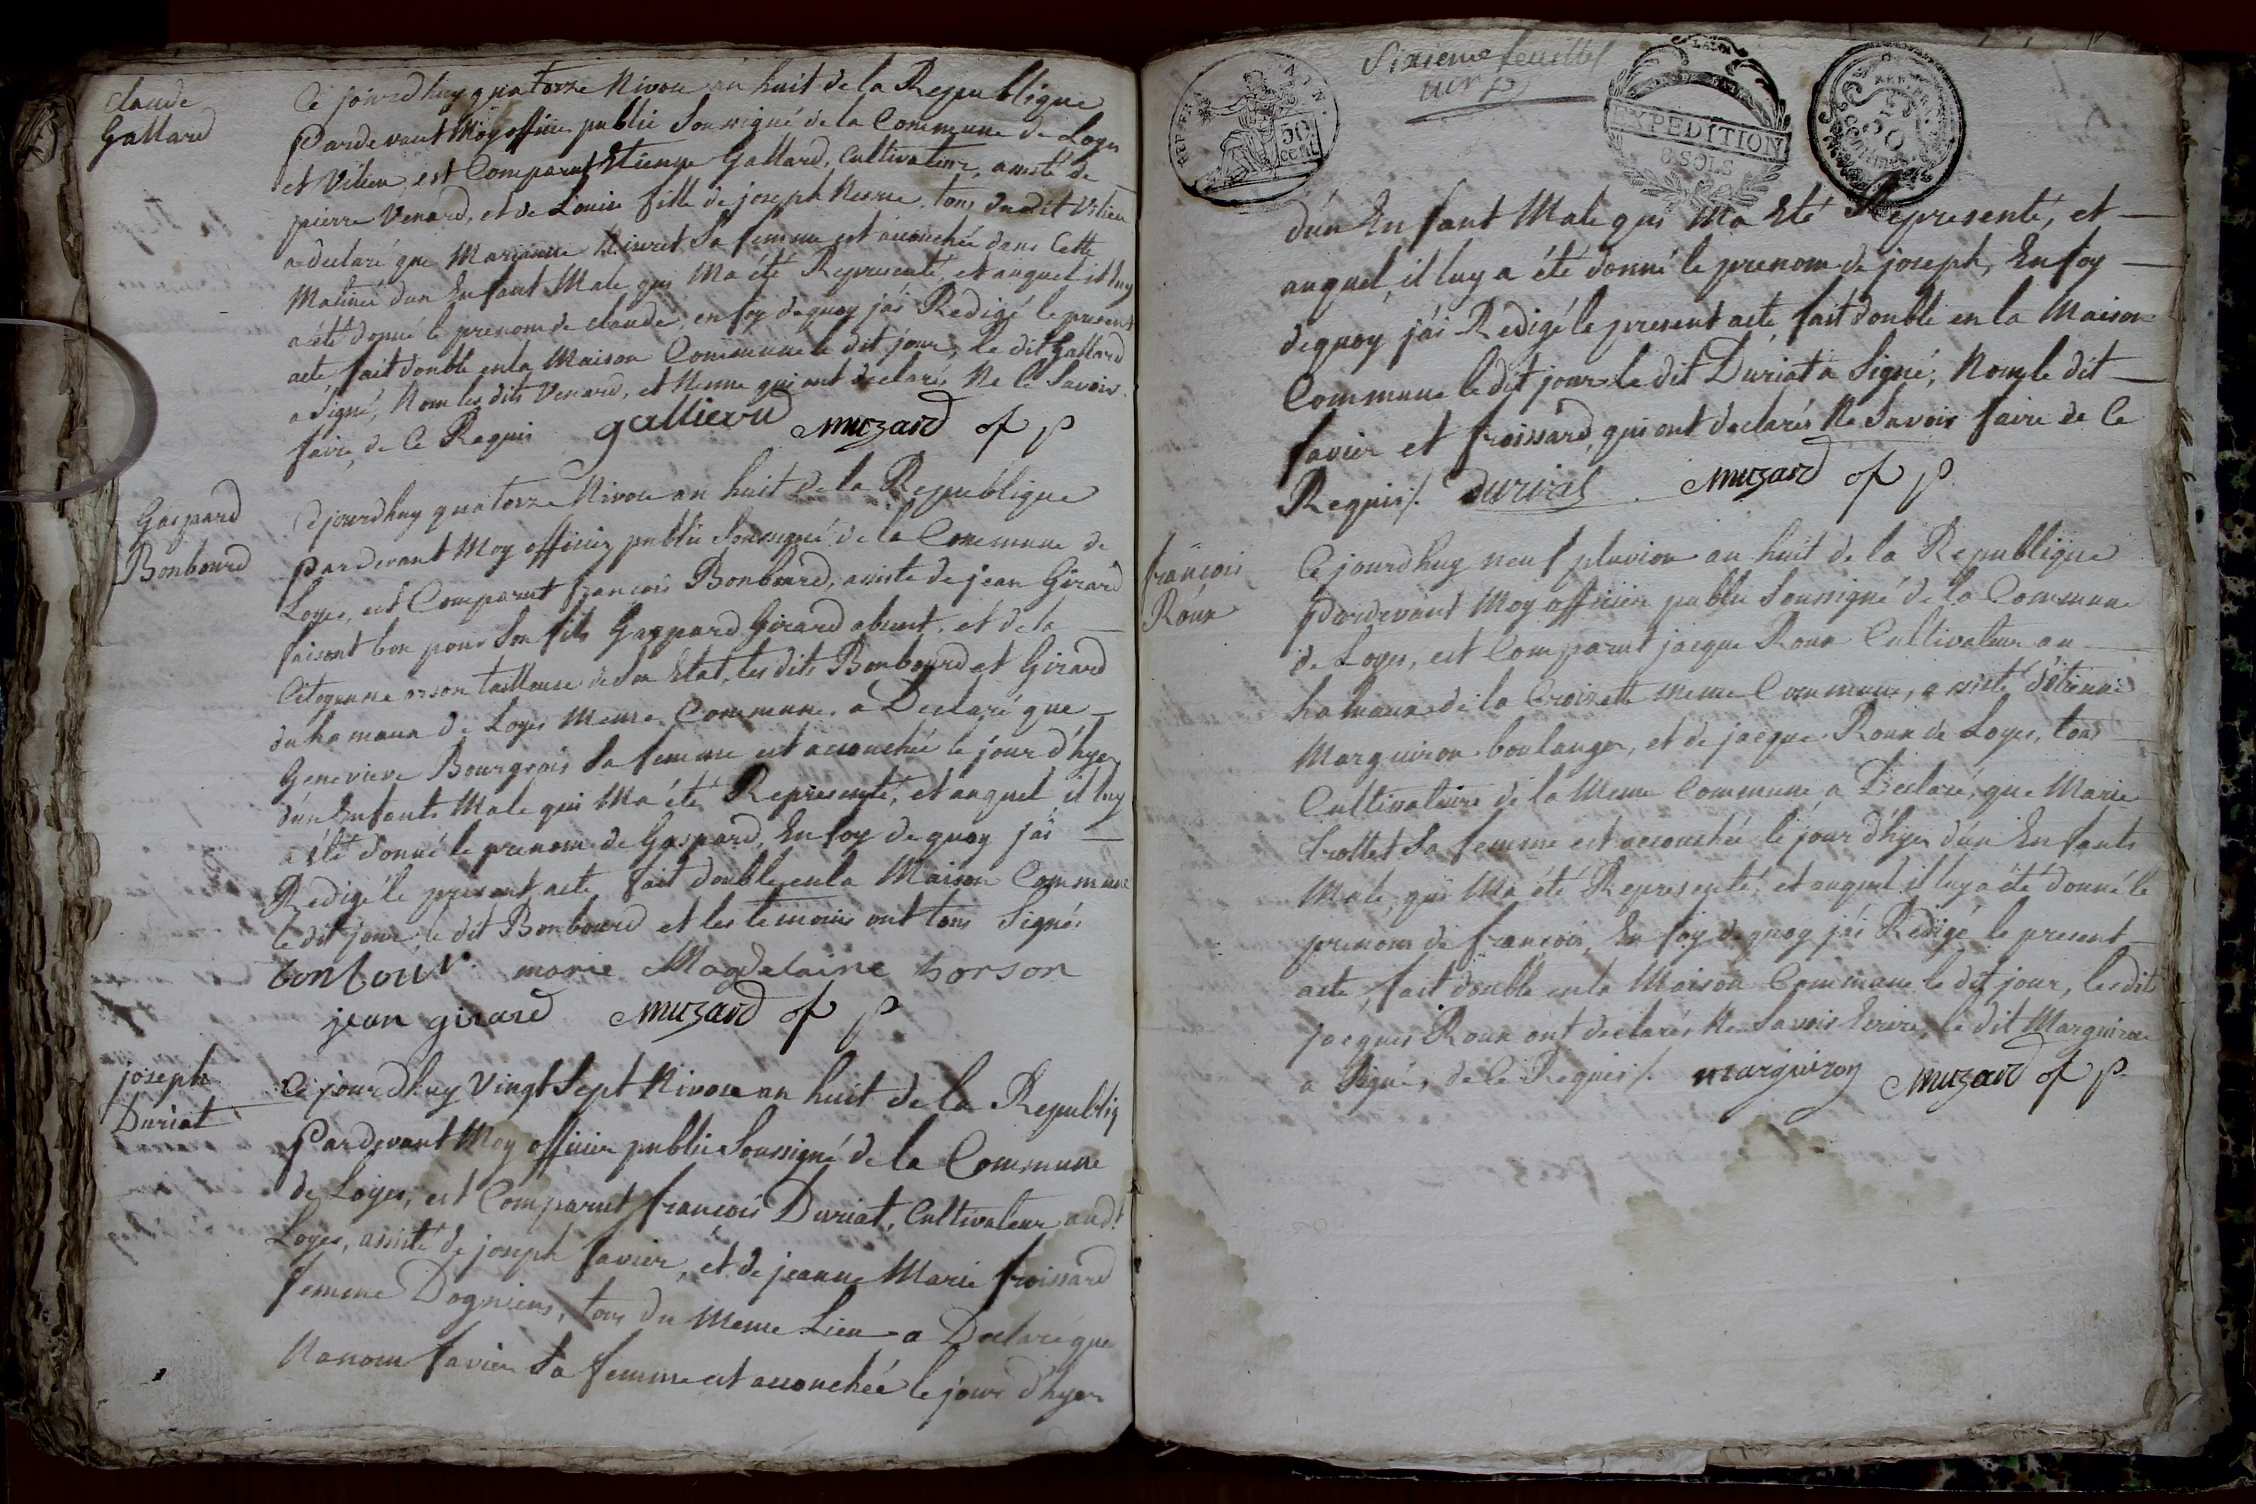 Claude
Gallard
Ce jourdhuy quatorze Nivose an huit de la Republique
Pardevant Moy officier public Soussigné de la Commune de Loyes
et Vilieu, est Comparut Etienne Gallard, Cultivateur, assisté de
pierre Venard, et de Louise fille de joseph Nesme, tous dudit Vilieu
a declaré que Marianne sa femme est accouchée dans Cette
Matinée d'un Enfant Male qui Ma été Representé, et auquel il luy
a été donné le prenom de claude, en foy de quoy j'ai Redigé le present
acte, fait double en la Maison Commune le dit jour, le dit Gallard
a Signé, Non les dits Venard, et Nesme qui ont declarés Ne le Savoir
faire, de Ce Requis gallierd Muzard of p
Gaspard
Bonbourd
Cejourdhuy quatorze Nivose an huit de la Republique
pardevant Moy officier public Soussigné de la Commune de
Loyes, est Comparut françois Bonbourd, assisté de jean Girard
faisant bon pour Son fils Gaspard Girard absent, et de la
Citoyenne orson tailleuse de Son Etat, les dits Bonbourd et Girard
du hamaux de Loyes Meme Commune, a Declaré que
Genevieve Bourgeois Sa femme est accouchée le jour d'hyer
d'un Enfants Male qui Ma été Representé, et auquel il luy
a été donné le prenom de Gaspard, En foy de quoy j'ai
Redigé le present acte, fait double en la Maison Commune
le dit jour, le dit Bonbourd et les temoins ont tous Signés
bonbour marie Magdelaine horson
jean girard Muzard of p
joseph
Duriat
Ce jourdhuy Vingt Sept Nivose an huit de la Republiq
Pardevant Moy officier public Soussigné de la Commune
de Loyes, est Comparut françois Duriat, Cultivateur aud!
Loyes, assisté de joseph favier, et de jeanne Marie froissard
femme Dogniens, tous du Meme Lieu a Declaré que
Nanon favier Sa femme est accouchée le jour d'hyer
Sixieme feuillet
50
cent
EXPEDITION
8 SOLS
d'un Enfant Male qui Ma Eté Representé, et
auquel, il luy a été donné le prenom de joseph, En foy
de quoy j'ai Redigé le present acte fait double en la Maison
Commune le dit jour le dit Duriat a Signé, Non le dit
favier et froissard, qui ont declarés Ne Savoir faire de Ce
Requis /. Duriat Muzard of p
françois
Roux
Ce jourdhuy neuf pluviose an huit de la Republique
Pardevant Moy officier public Soussigné de la Commune
de Loyes, est Comparut jacque Roux Cultivateur au
hamaux de la Croisette meme Commune, assisté d'étienne
Marguiron boulanger, et de jacque Roux de Loyes, tous
Cultivateurs de la Meme Commune, a Declaré, que Marie
trollet Sa femme est accouchée le jour d'hyer d'un Enfants
Male, qui Ma été Representé, et auquel il luy a été donné le
prenom de françois, En foy de quoy j'ai Redigé le present
acte, fait double en la Maison Commune le dit jour, les dits
jacques Roux ont declarés Ne Savoir Ecrire, le dit Marguiron
a Signé, de Ce Requis /. marguiron Muzard of p